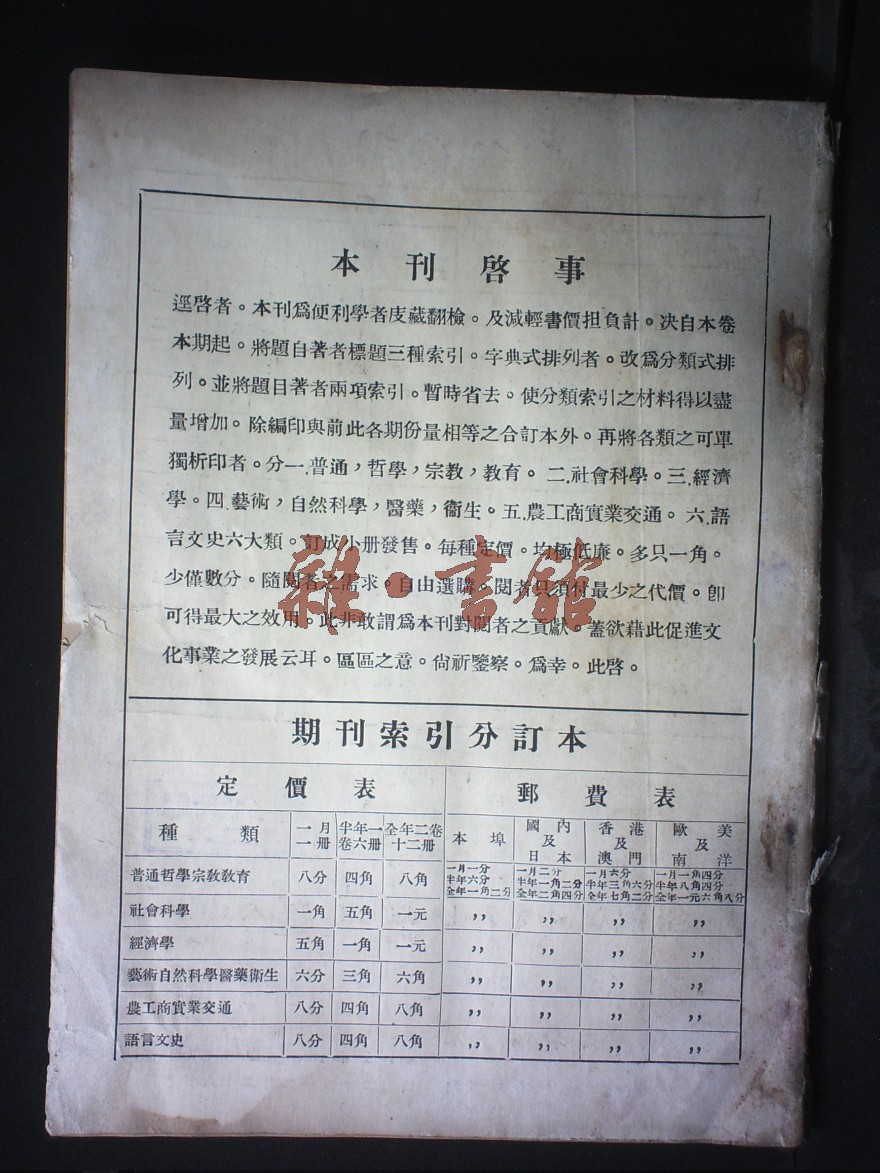 本刊啓事
逕啓者。本刊爲便利學者庋藏翻檢。及減輕書價担負計。決自本卷
本期起。將題自著者標題三種索引。字典式排列者。改爲分類式排
列。並將題目著者兩項索引。暫時省去。使分類索引之材料得以盡
量增加。除編印與前此各期份量相等之合訂本外。再將各類之可單
獨析印者。分一.普通，哲學，宗教，教育。二.社會科學。三.經濟
學。四.藝術，自然科學，醫藥，衞生。五.農工商實業交通。六.語
言文史六大類。訂成小册發售。每種定價。均極低廉。多只一角。
少僅數分。隨閱者之需求。自由選購。閱者只須付最少之代價。卽
可得最大之效用。此非敢謂爲本刊對閱者之貢獻。蓋欲藉此促進文
化事業之發展云耳。區區之意。尙祈鑒察。爲幸。此啓。
雜·書館
期刊索引分訂本
定價表 郵費表
種類 一月一册 半年一卷六册 全年二卷十二册 本埠 國內及日本 香港及澳門 歐美及南洋
普通哲學宗敎敎育 八分 四角 八角 一月一分 半年六分 全年一角二分 一月二分 半年一角二分 全年二角四分 一月六分 半年三角六分 全年七角二分 一月一角四分 半年八角四分 全年一元六角八分
社會科學 一角 五角 一元 ,, ,, ,, ,,
經濟學 五角 一角 一元 ,, ,, ,, ,,
藝術自然科學醫藥衞生 六分 三角 六角 ,, ,, ,, ,,
農工商實業交通 八分 四角 八角 ,, ,, ,, ,,
語言文史 八分 四角 八角 ,, ,, ,, ,,